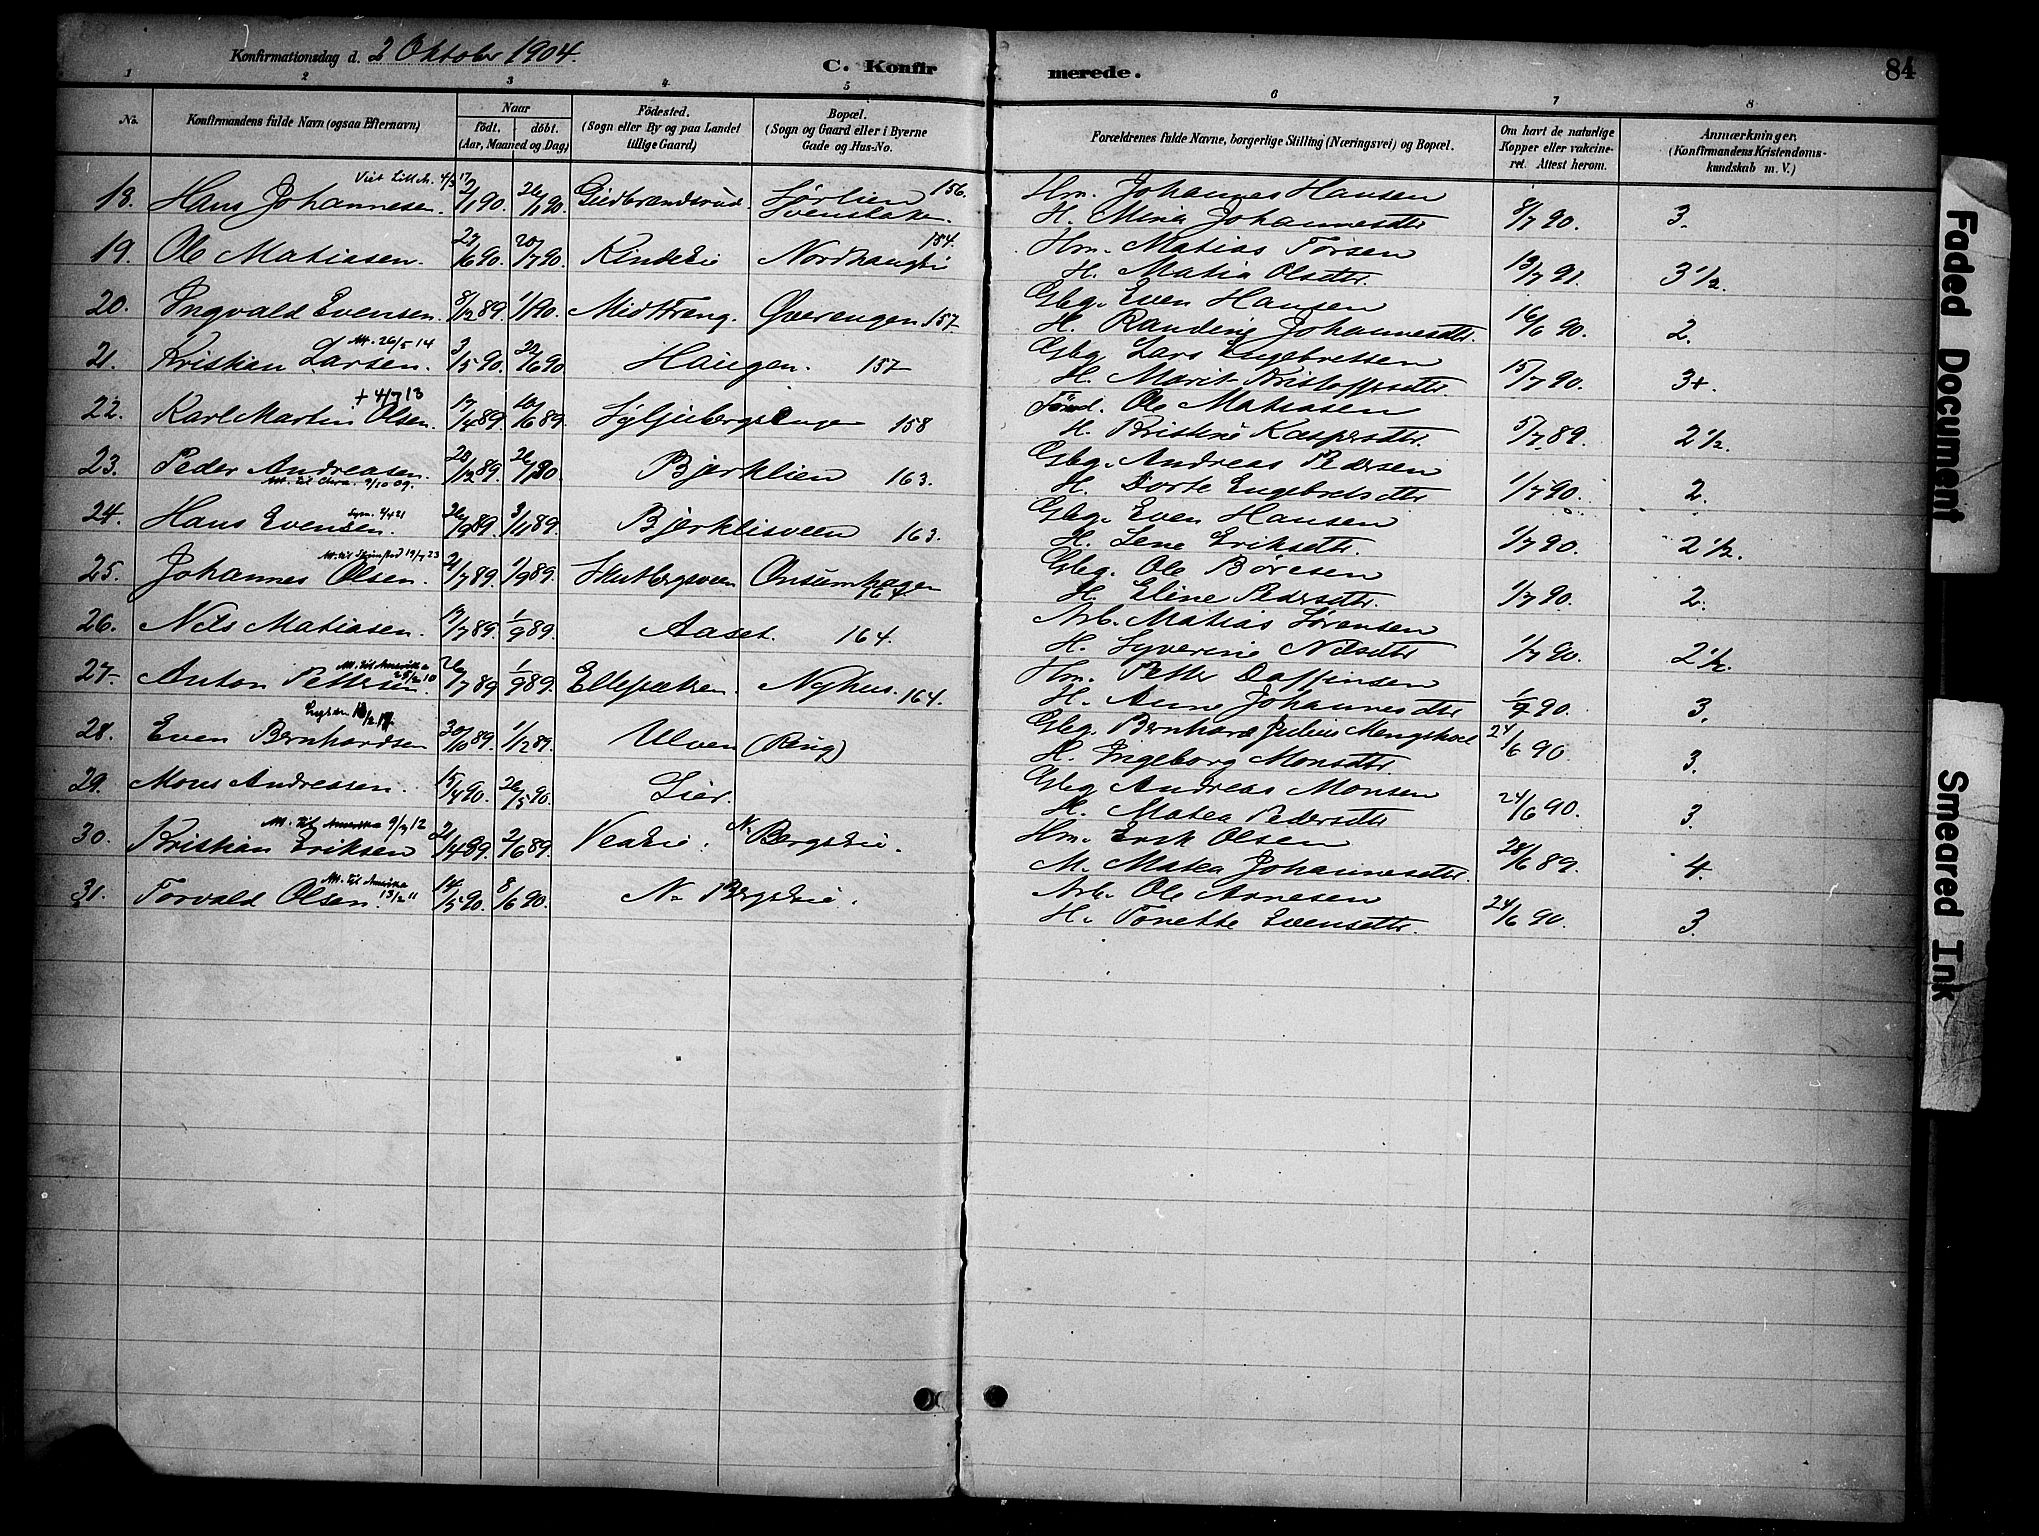 Konfirmationsdag d. 2 Oktober 1904.
C. Konfirmerede.
84
1 2 3 4 5 6 7 8
No.
Konfirmandens fulde Navn (ogsaa Efternavn)
Naar
födt. döbt.
(Aar, Maaned og Dag)
Födested.
(Sogn eller By og paa Landet
tillige Gaard)
Bopæl.
(Sogn og Gaard eller i Byerne
Gade og Hus-No.
Forældrenes fulde Navne, borgerlige Stilling (Næringsvei) og Bopæl.
Om havt de naturlige
Kopper eller vakcine-
ret. Attest herom.
Anmærkninger.
(Konfirmandens Kristendoms-
kundskab m. V.)
18. Hans Johannesen. 2/1 90. 26/1 90. Gudbrandsrud Sørlien 156. Hm. Johannes Hansen
H. Mina Johannesdtr 8/7 90. 3.
19. Ole Matiasen. 27/6 90. 20/7 90. Kindlie Nordhaugli 154. Hm. Matias Torsen
H. Matea Olsdtr. 13/7 91. 3 1/2.
20. Ingvald Evensen. 8/12 89. 1/1 90. Midtkræng. Øverengen 157 Gbg. Even Hansen
H. Randine Johannesdtr. 16/6 90. 2.
Att. 26/5 14
21. Kristian Larsen. 3/5 90. 22/6 90 Haugen. 157 Gbg. Lars Engebretsen
H. Marit Kristoffersdtr. 15/7 90. 3+.
+ 4/7 13
22. Karl Martin Olsen. 17/4 89. 10/6 89. 158 Ole Matiasen
H. Kristine Kaspersdtr. 5/7 89. 2 1/2.
23. Peder Andreasen. 28/12 89. 26/1 90. Bjørklien 163. Gbg. Andreas Pedersen
Att. til Chra. 9/10 09. H. Dorte Engebretsdtr 1/7 90. 2.
24. Hans Evensen. 26/9 89. 3/11 89. Bjørklisveen 163. Gbg. Even Hansen
H. Lene Eriksdtr. 1/7 90. 2 1/2.
25. Johannes Olsen. 21/7 89. 1/9 89. Skutbergsveen Onsumhagen 164 Gbg. Ole Børesen
H. Eline Pedersdtr. 1/7 90. 2.
26. Nils Matiasen. 17/7 89. 1/9 89. Aaset. 164. Arb. Matias Sørensen
H. Syverine Nilsdtr 1/7 90. 2 1/2.
Att. til Amerika 28/2 10
27. Anton Pettersen. 26/7 89 1/9 89. Nyhus. 164. Hm. Petter Daffinsen
H. Anne Johannesdtr 1/7 90. 3.
28. Even Bernhardsen 30/10 89. 1/12 89. Ulven (Ring) Gbg. Bernhard Julius Mengshoel
H. Ingeborg Monsdtr. 24/6 90. 3.
29. Mons Andreasen. 15/4 90. 26/5 90. Lier. Gbg. Andreas Monsen
H. Matea Pedersdtr 24/6 90. 3.
Att. til Amerika 9/3 12
30. Kristian Eriksen 21/4 89. 2/6 89. N. Bergslie. Hm. Erik Olsen
M. Matea Johannesdtr. 28/6 89. 4.
Att. til Amerika 13/2 11
31. Torvald Olsen. 14/5 90. 8/6 90. N. Bergslie. Arb. Ole Arnesen
H. Tonette Evensdtr. 24/6 90. 3.
Faded Document
Smeared Ink